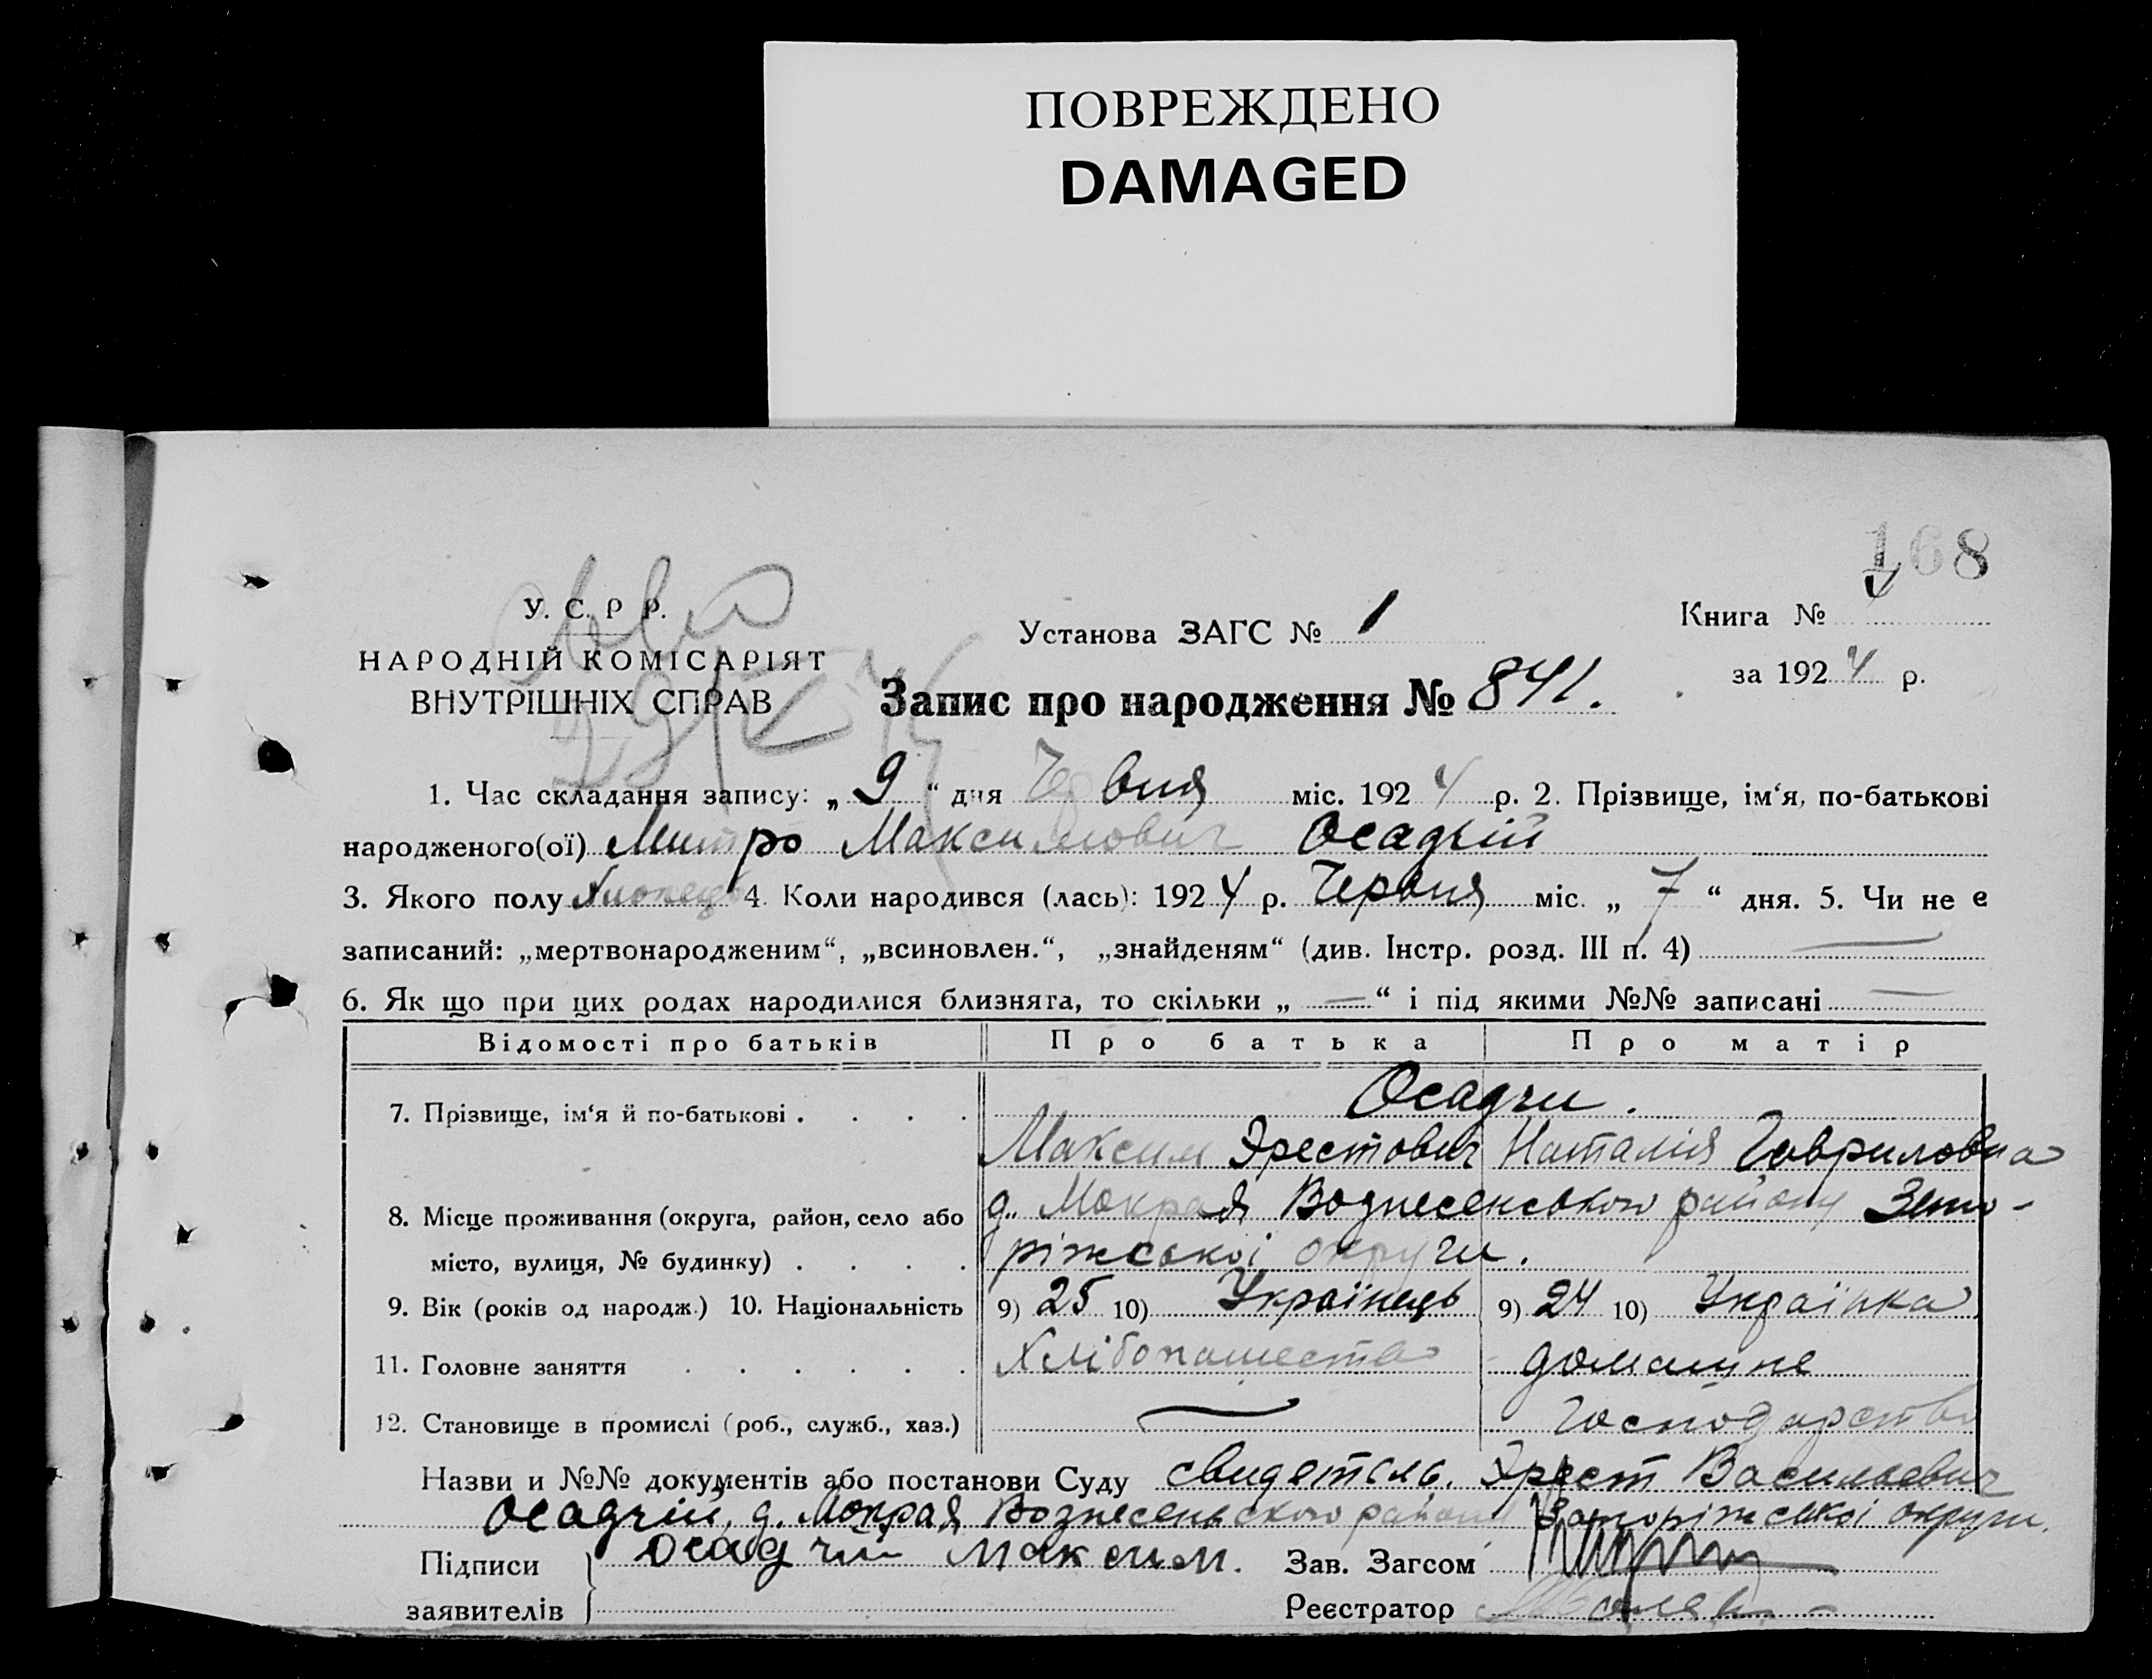 ПОВРЕЖДЕНО
DAMAGED
168
У. С. Р Р.
НАРОДНІЙ КОМІСАРІЯТ
ВНУТРІШНІХ СПРАВ
Установа ЗАГС № 1
Книга №
за 1924 р.
Запис про народження № 841.
1. Час складання запису: „ 9 “ дня Червня міс. 1924 р. 2. Прізвище, ім‘я, по-батькові
народженого(ої) Митро Максимович Осадчій
3. Якого полу Хлопець 4. Коли народився (лась): 1924 р. Червня міс. „ 7 “ дня. 5. Чи не є
записаний: „мертвонародженим“, „всиновлен.“, „знайденям“ (див. Інстр. розд. III п. 4) —
6. Як що при цих родах народилися близнята, то скільки „ — “ і під якими №№ записані —
Відомості про батьків Про батька Про матір
7. Прізвище, ім‘я й по-батькові . . . . Осадчи.
Максим Эрестович Наталія Гавриловна
8. Місце проживання (округа, район, село або д. Мокрая Вознесенського району Запо-
місто, вулиця, № будинку) . . . . ріжської округи.
9. Вік (років од народж.) 10. Національність 9) 25 10) Українець 9) 24 10) Українка
11. Головне заняття . . . . . . Хлібопашество домашнє
12. Становище в промислі (роб., служб., хаз.) — Господарство
Назви и №№ документів або постанови Суду свидетель. Эрест Васильевич
Осадчій, д. Мокрая Вознесенського району Запоріжської округи.
Підписи Осадчій Максим. Зав. Загсом
заявителів Реєстратор